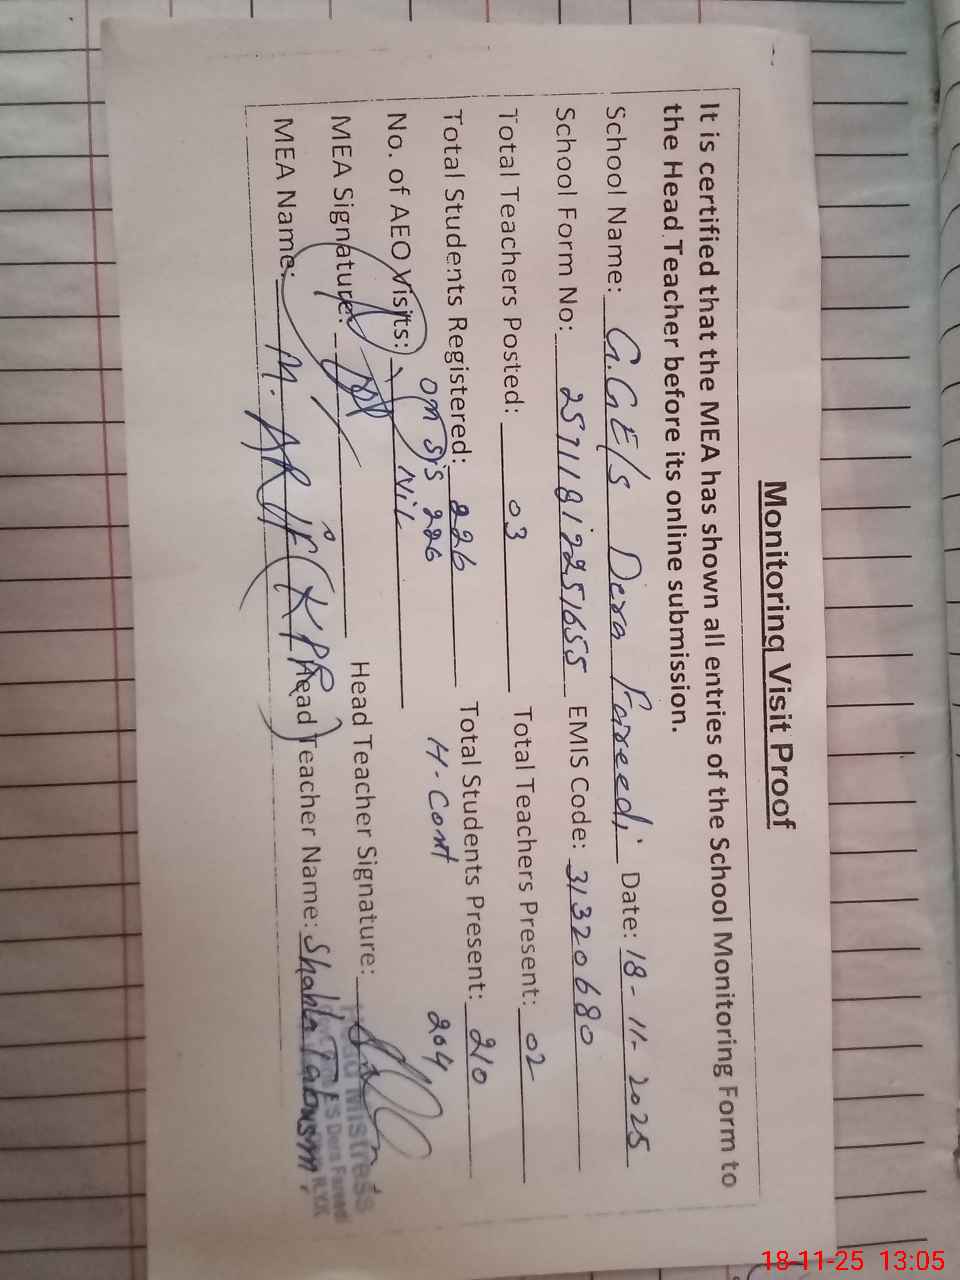 Monitoring Visit Proof
It is certified that the MEA has shown all entries of the School Monitoring Form to
the Head Teacher before its online submission.
School Name: G.G.E/S Dera Fareedi Date: 18-11-2025
School Form No: 25711812251655 EMIS Code: 31320680
Total Teachers Posted: 03 Total Teachers Present: 02
Total Students Registered: 226 Total Students Present: 210
on sis 226 H-Cont 204
No. of AEO Visits: Nil
MEA Signature: Head Teacher Signature:
MEA Name: M. ARIF (KPR) Head Teacher Name: Shahla Tabusm
Head Mistress
ES Dera Fareedi
RYK
18-11-25 13:05